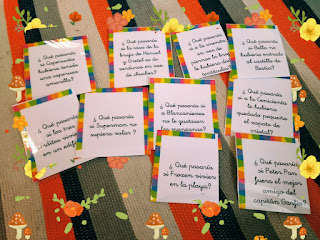 ¿ Qué pasaría
si Caperucita
hubiera tenido
una caperuza
amarilla?
¿ Qué pasaría
si la casa de la
bruja de Hansel
y Gretel es de
verduras en vez
de chuches?
¿ Qué pasaría
si
en vez de
piernas la
le hubieran dado
¿ Qué pasaría
si Bella no
hubiera entrado
al castillo de
Bestia?
¿ Qué pasaría
si los tres
cerditos vivieran
en un edificio
¿ Qué pasaría
si Superman no
supiera volar?
¿ Qué pasaría si
a Blancanieves
no le gustasen
las manzanas?
¿ Qué pasaría si
a la Cenicienta
le hubiera
quedado pequeño
el zapato de
cristal?
¿ Qué pasaría
si Frozen viviera
en la playa?
¿ Qué pasaría
si Peter Pam
fuera el mejor
amigo del
capitán Garfio?